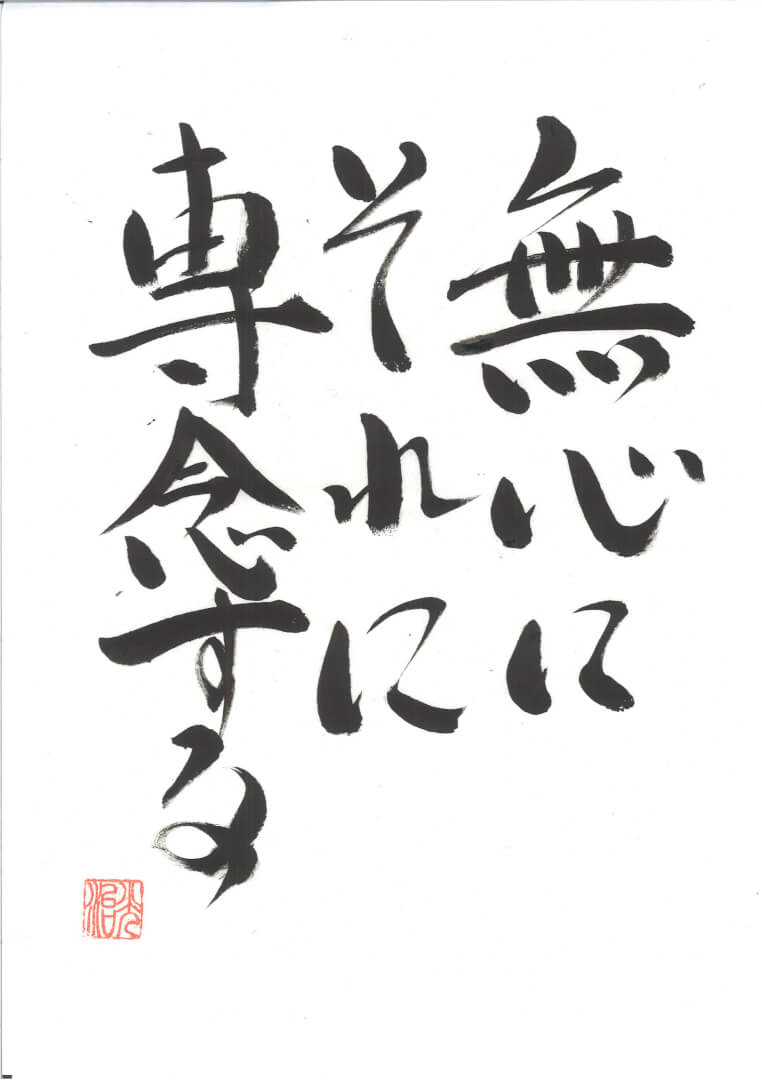 無心に
それに
専念する